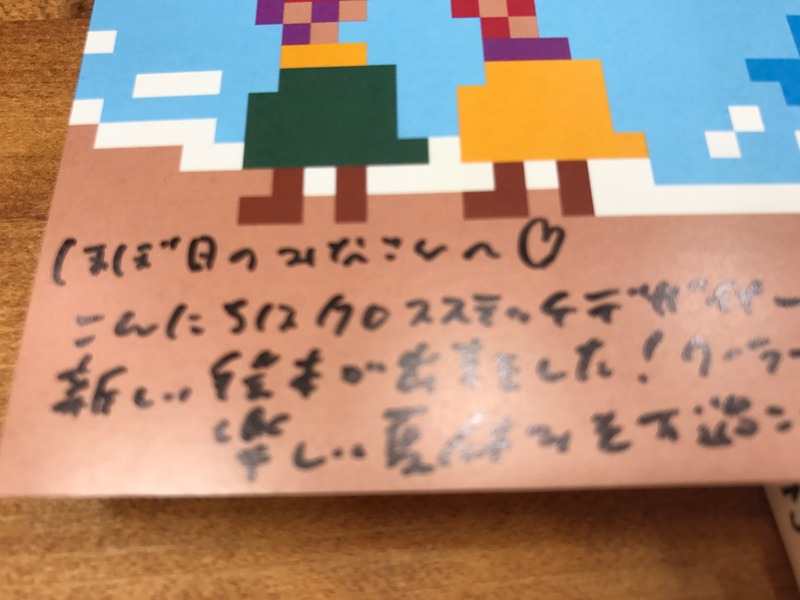 ほぼ日のみなさんへ♡
こんにちは クロスステッチデザイナー
新しい絵本が出ました!クーラー
楽しい夏休みをお過ご